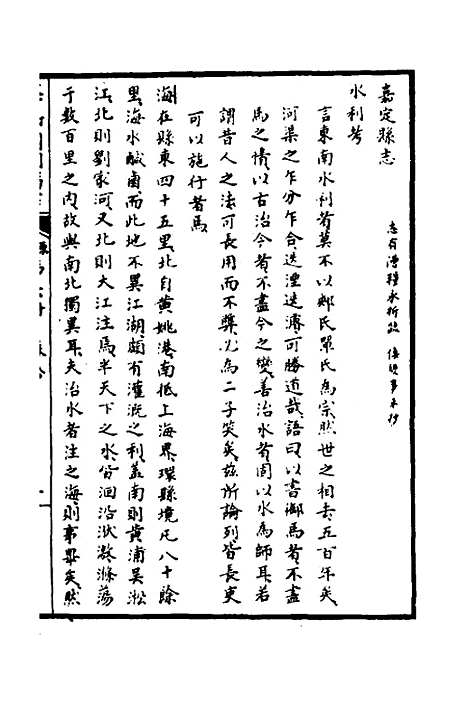 嘉定縣志
水利考
言東南水利者莫不以郟氏單氏為宗然世之相去五百年矣
河渠之乍分乍合迭湮迭濬可勝道哉語曰以書御馬者不盡
馬之情以古治今者不盡今之變善治水者固以水為師耳若
謂昔人之法可長用而不獘此為二子笑矣茲所論列皆長吏
可以施行者焉
海在縣東四十五里北自黃姚港南抵上海界環縣境凡八十餘
里海水鹹鹵而此地不異江湖頗有灌溉之利蓋南則黃浦吳淞
江北則劉家河又北則大江注焉半天下之水皆洄沿洑激滌蕩
于數百里之內故與南北獨異耳夫治水者注之海則事畢矣然